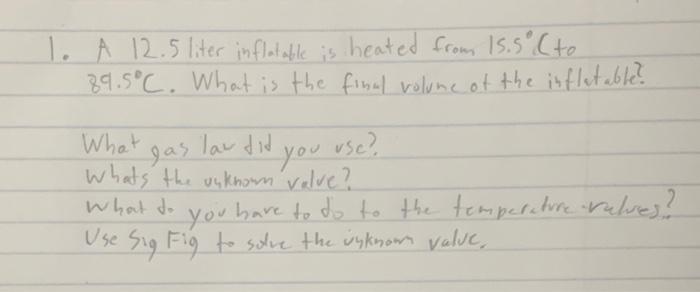 1. A 12.5 liter inflatable is heated from 15.5°C to
89.5°C. What is the final volume of the inflatable?
What gas law did you use?
Whats the unknown value?
What do you have to do to the temperature values?
Use Sig Fig to solve the unknown value.